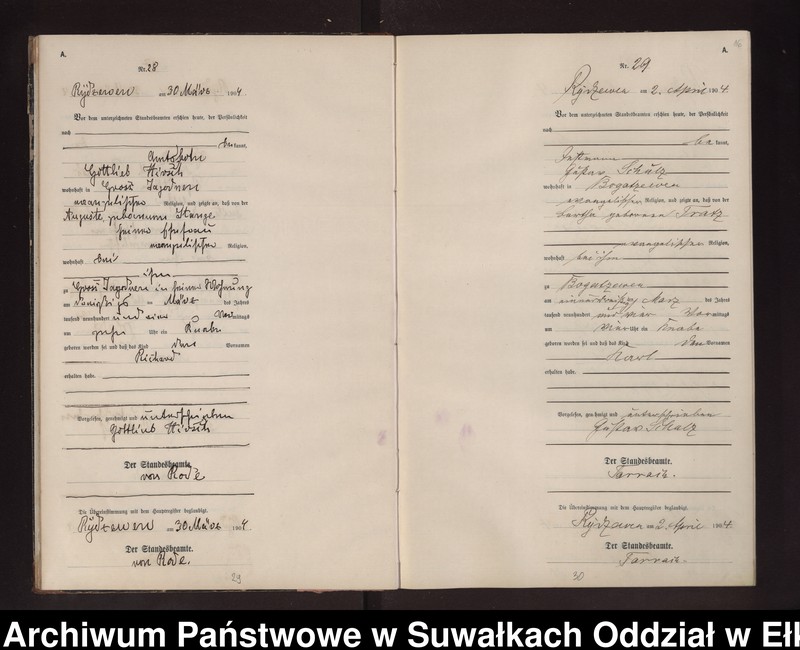 A.
Nr. 28
Rydzewen am 30 März 1904
Vor dem unterzeichneten Standesbeamten erschien heute, der Persönlichkeit
nach
bekannt,
Gottlieb Hirsch
wohnhaft in Gross Jagodnen
evangelischer Religion, und zeigte an, daß von der
Auguste, geborenen Stange
seiner Ehefrau
evangelischer Religion,
wohnhaft bei
ihm
zu Gross Jagodnen in seiner Wohnung
am März des Jahres
tausend neunhundert und vier Vormittags
um zehn Uhr ein Knabe
geboren worden sei und daß das Kind den Vornamen
Richard
erhalten habe.
Vorgelesen, genehmigt und unterschrieben
Gottlieb Hirsch
Der Standesbeamte.
von Rode
Die Übereinstimmung mit dem Hauptregister beglaubigt.
Rydzewen am 30 März 1904
Der Standesbeamte.
von Rode.
29
A.
Nr. 29
Rydzewen am 2. April 1904
Vor dem unterzeichneten Standesbeamten erschien heute, der Persönlichkeit
nach
bekannt,
Gustav Schulz
wohnhaft in Bogatzewen
evangelischer Religion, und zeigte an, daß von der
Bertha geborenen
evangelischer Religion,
wohnhaft bei ihm
zu Bogatzewen
am einunddreißigsten März des Jahres
tausend neunhundert und vier Vormittags
um vier Uhr ein Knabe
geboren worden sei und daß das Kind den Vornamen
Karl
erhalten habe.
Vorgelesen, genehmigt und unterschrieben
Gustav Schulz
Der Standesbeamte.
Die Übereinstimmung mit dem Hauptregister beglaubigt.
Rydzewen am 2. April 1904.
Der Standesbeamte.
30
Archiwum Państwowe w Suwałkach Oddział w Ełk